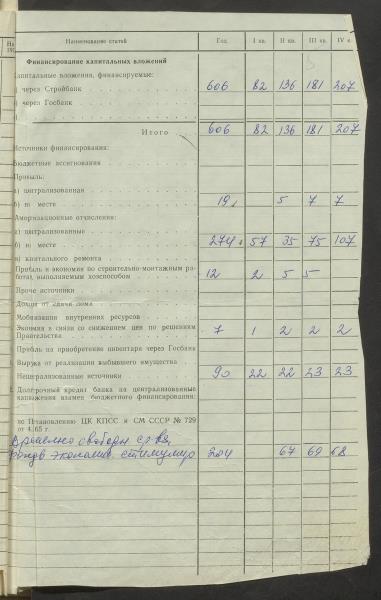 Наименование статей Год I кв. II кв. III кв. IV к
Финансирование капитальных вложений
Капитальные вложения, финансируемые:
) через Стройбанк 606 82 136 181 207
) через Госбанк
Итого 606 82 136 181 207
Источники финансирования:
Бюджетные ассигнования
Прибыль:
а) централизованная
б) по месте 19 5 7 7
Амортизационные отчисления:
а) централизованные
б) по месте 274 57 35 75 107
в) капитального ремонта
Прибыль и экономия по строительно-монтажным ра-
ботам, выполняемым хозспособом 12 2 5 5
Прочие источники
Доходы от сдачи лома
Мобилизация внутренних ресурсов
Экономия в связи со снижением цен по решениям
Правительства 7 1 2 2 2
Прибыль на приобретение инвентаря через Госбанк
Выручка от реализации выбывшего имущества
Нецентрализованные источники 90 22 22 23 23
Долгосрочный кредит банка на централизованные
капвложения взамен бюджетного финансирования:
по Постановлению ЦК КПСС и СМ СССР № 729
от 4.65 г.
Временно свободн ср-ва
фондов экономич. стимулир 204 67 69 68